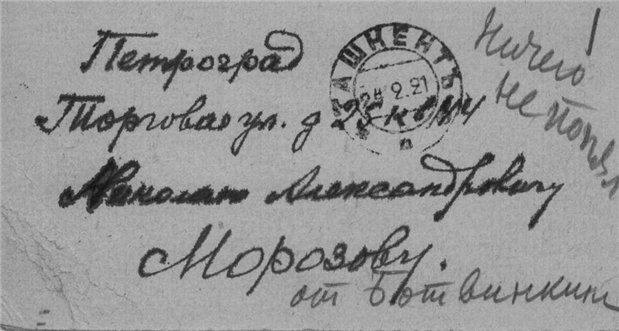 Петроград
Торговая ул. д 25 кв
Николаю Александровичу
Морозову.
от Ботвинкин
ТАШКЕНТЪ
24 2.21
п
Ничего
не понял
!